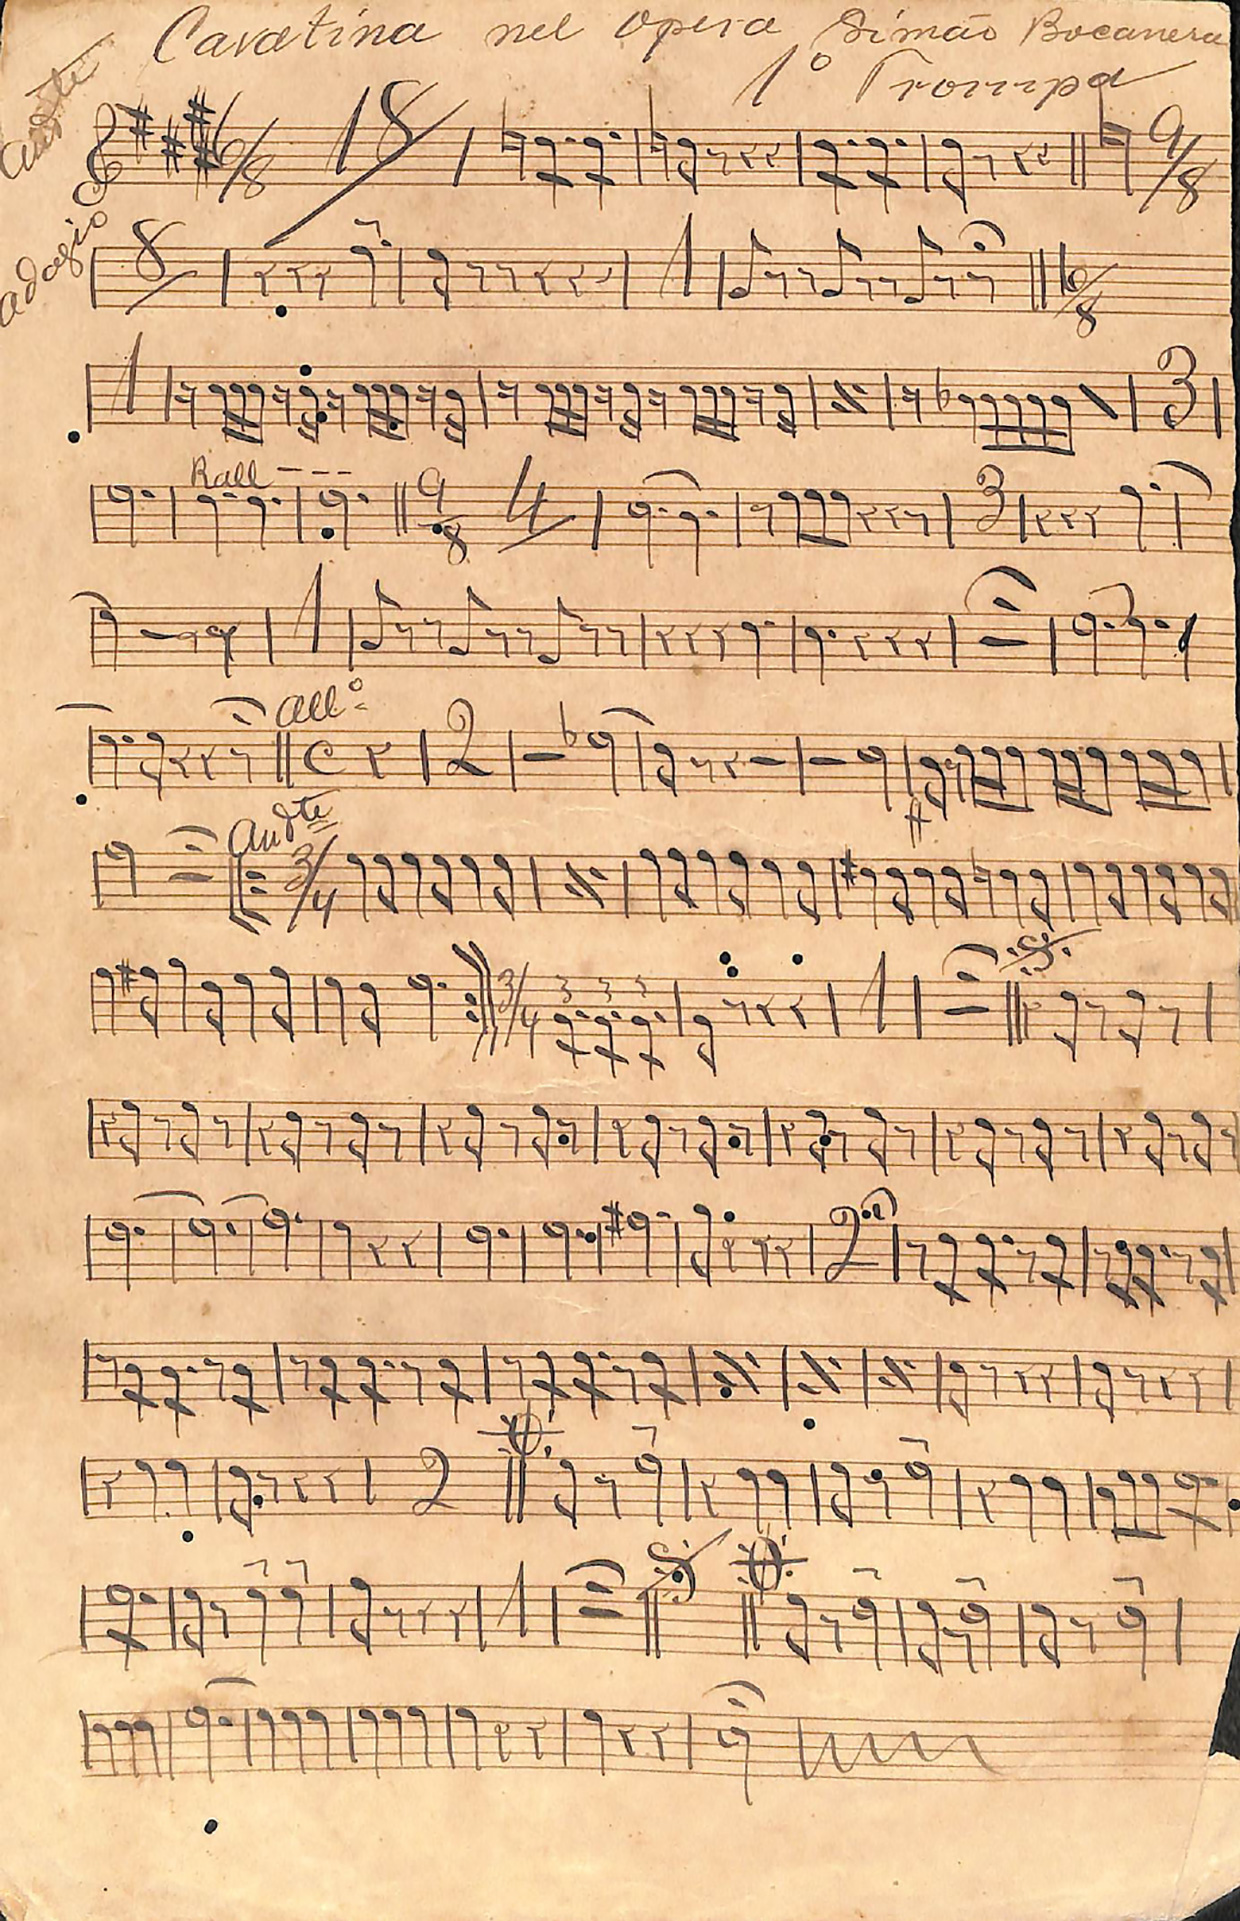 Cavatina nel opera Simão Bocanera
1º Trompa
Andte
6/8 18 9/8
Adagio
8 1 6/8
1 3
Rall - - -
9/8 4 3
1
All.º
C 2
Andte
3/4
3/4 3 3 3 1
2
2
1